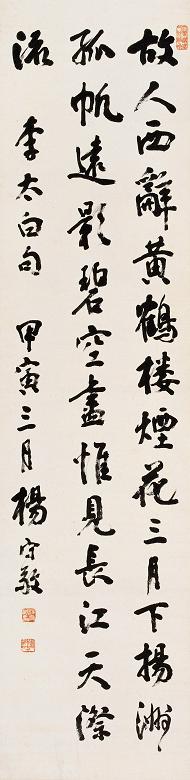 故人西辭黃鶴楼煙花三月下揚洲
孤帆遠影碧空盡惟見長江天際
流 李太白句 甲寅三月楊守敬